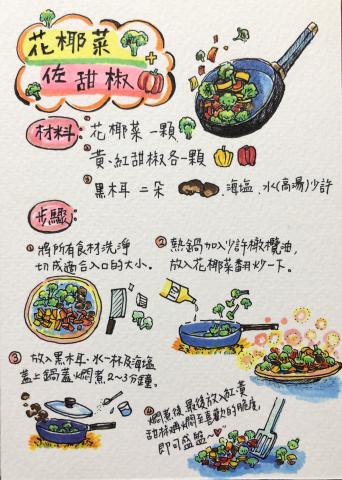 花椰菜
佐甜椒
材料:
①花椰菜一顆
②黃、紅甜椒各一顆
③黑木耳 二朵 、海塩、水(高湯)少許
步驟:
①將所有食材洗淨
切成適合入口的大小。
②熱鍋加入少許橄欖油,
放入花椰菜翻炒一下。
③放入黑木耳、水一杯及海塩
蓋上鍋蓋燜煮2~3分鐘。
④燜煮後最後放入紅、黃
甜椒再燜至喜歡的脆度
即可盛盤~